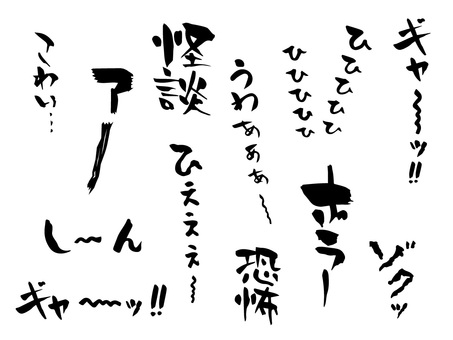 ギャ〜〜ッ!!
ひひひひひ
ひひひひひ
うわぁぁぁ〜
怪談
アー
こわい…
ゾクッ
ホラー
恐怖
ひえぇぇぇ〜
し〜〜ん
ギャ〜〜ッ!!